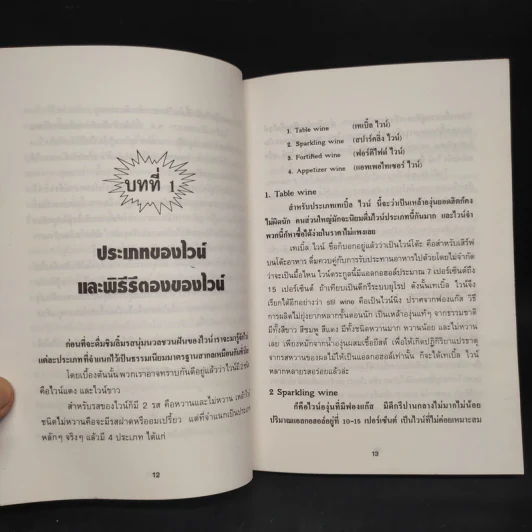 บทที่ 1
ประเภทของไวน์
และพิธีรีตองของไวน์
ก่อนที่จะดื่มชิมลิ้มรสนุ่มนวลชวนฝันของไวน์ เราจะมารู้จักไวน์
แต่ละประเภทที่จำแนกไว้เป็นธรรมเนียมมาตรฐานสากลเหมือนกันทั่วโลก
โดยเบื้องต้นนั้นพวกเราอาจทราบกันดีอยู่แล้วว่าไวน์มี
คือไวน์แดง และไวน์ขาว
สำหรับรสของไวน์ก็มี 2 รส คือหวานและไม่หวาน
ชนิดไม่หวานคือจะมีรสฝาดหรืออมเปรี้ยว แต่ที่จำแนกเป็นประเภท
หลักๆ จริงๆ แล้วมี 4 ประเภท ได้แก่
12
1. Table wine (เทเบิ้ล ไวน์)
2. Sparkling wine (สปาร์คลิ่ง ไวน์)
3. Fortified wine (ฟอร์ติไฟด์ ไวน์)
4. Appetizer wine (แอพเพอไทเซอร์ ไวน์)
1. Table wine
สำหรับประเภทเทเบิ้ล ไวน์ นี้จะว่าเป็นเหล้าองุ่นยอดฮิตก็คง
ไม่ผิดนัก คนส่วนใหญ่มักจะนิยมดื่มไวน์ประเภทนี้กันมาก และไวน์จำ
พวกนี้ก็หาซื้อได้ง่ายในราคาไม่แพงเลย
เทเบิ้ล ไวน์ ชื่อก็บอกอยู่แล้วว่าเป็นไวน์โต๊ะ คือสำหรับเสิร์ฟ
บนโต๊ะอาหาร ดื่มควบคู่กับการรับประทานอาหารไปด้วยโดยไม่จำกัด
ว่าจะเป็นมื้อไหน ไวน์ตระกูลนี้มีแอลกอฮอล์ประมาณ 7 เปอร์เซ็นต์ถึง
15 เปอร์เซ็นต์ ถ้าเทียบเป็นดีกรีระบบยุโรป ดังนั้นเทเบิ้ล ไวน์จึง
เรียกได้อีกอย่างว่า stil wine คือเป็นไวน์นิ่ง ปราศจากฟองแก๊ส วิธี
การผลิตไม่ยุ่งยากหลายขั้นตอนนัก เป็นเหล้าองุ่นแท้ๆ จากธรรมชาติ
มีทั้งสีขาว สีชมพู สีแดง มีทั้งชนิดหวานมาก หวานน้อย และไม่หวาน
เลย เพียงหมักจากน้ำองุ่นผสมเชื้อยีสต์ เพื่อให้เกิดปฏิกิริยาแปรธาตุ
จากรสหวานของผลไม้ให้เป็นแอลกอฮอล์เท่านั้น ก็จะได้เทเบิ้ล ไวน์
หลากหลายรสอร่อยแล้วล่ะ
2 Sparkling wine
ก็คือไวน์องุ่นที่มีฟองแก๊ส มีดีกรีปานกลางไม่มากไม่น้อย
ปริมาณแอลกอฮอล์อยู่ที่ 10-15 เปอร์เซ็นต์ เป็นไวน์ที่ไม่ค่อยเหมาะสม
13